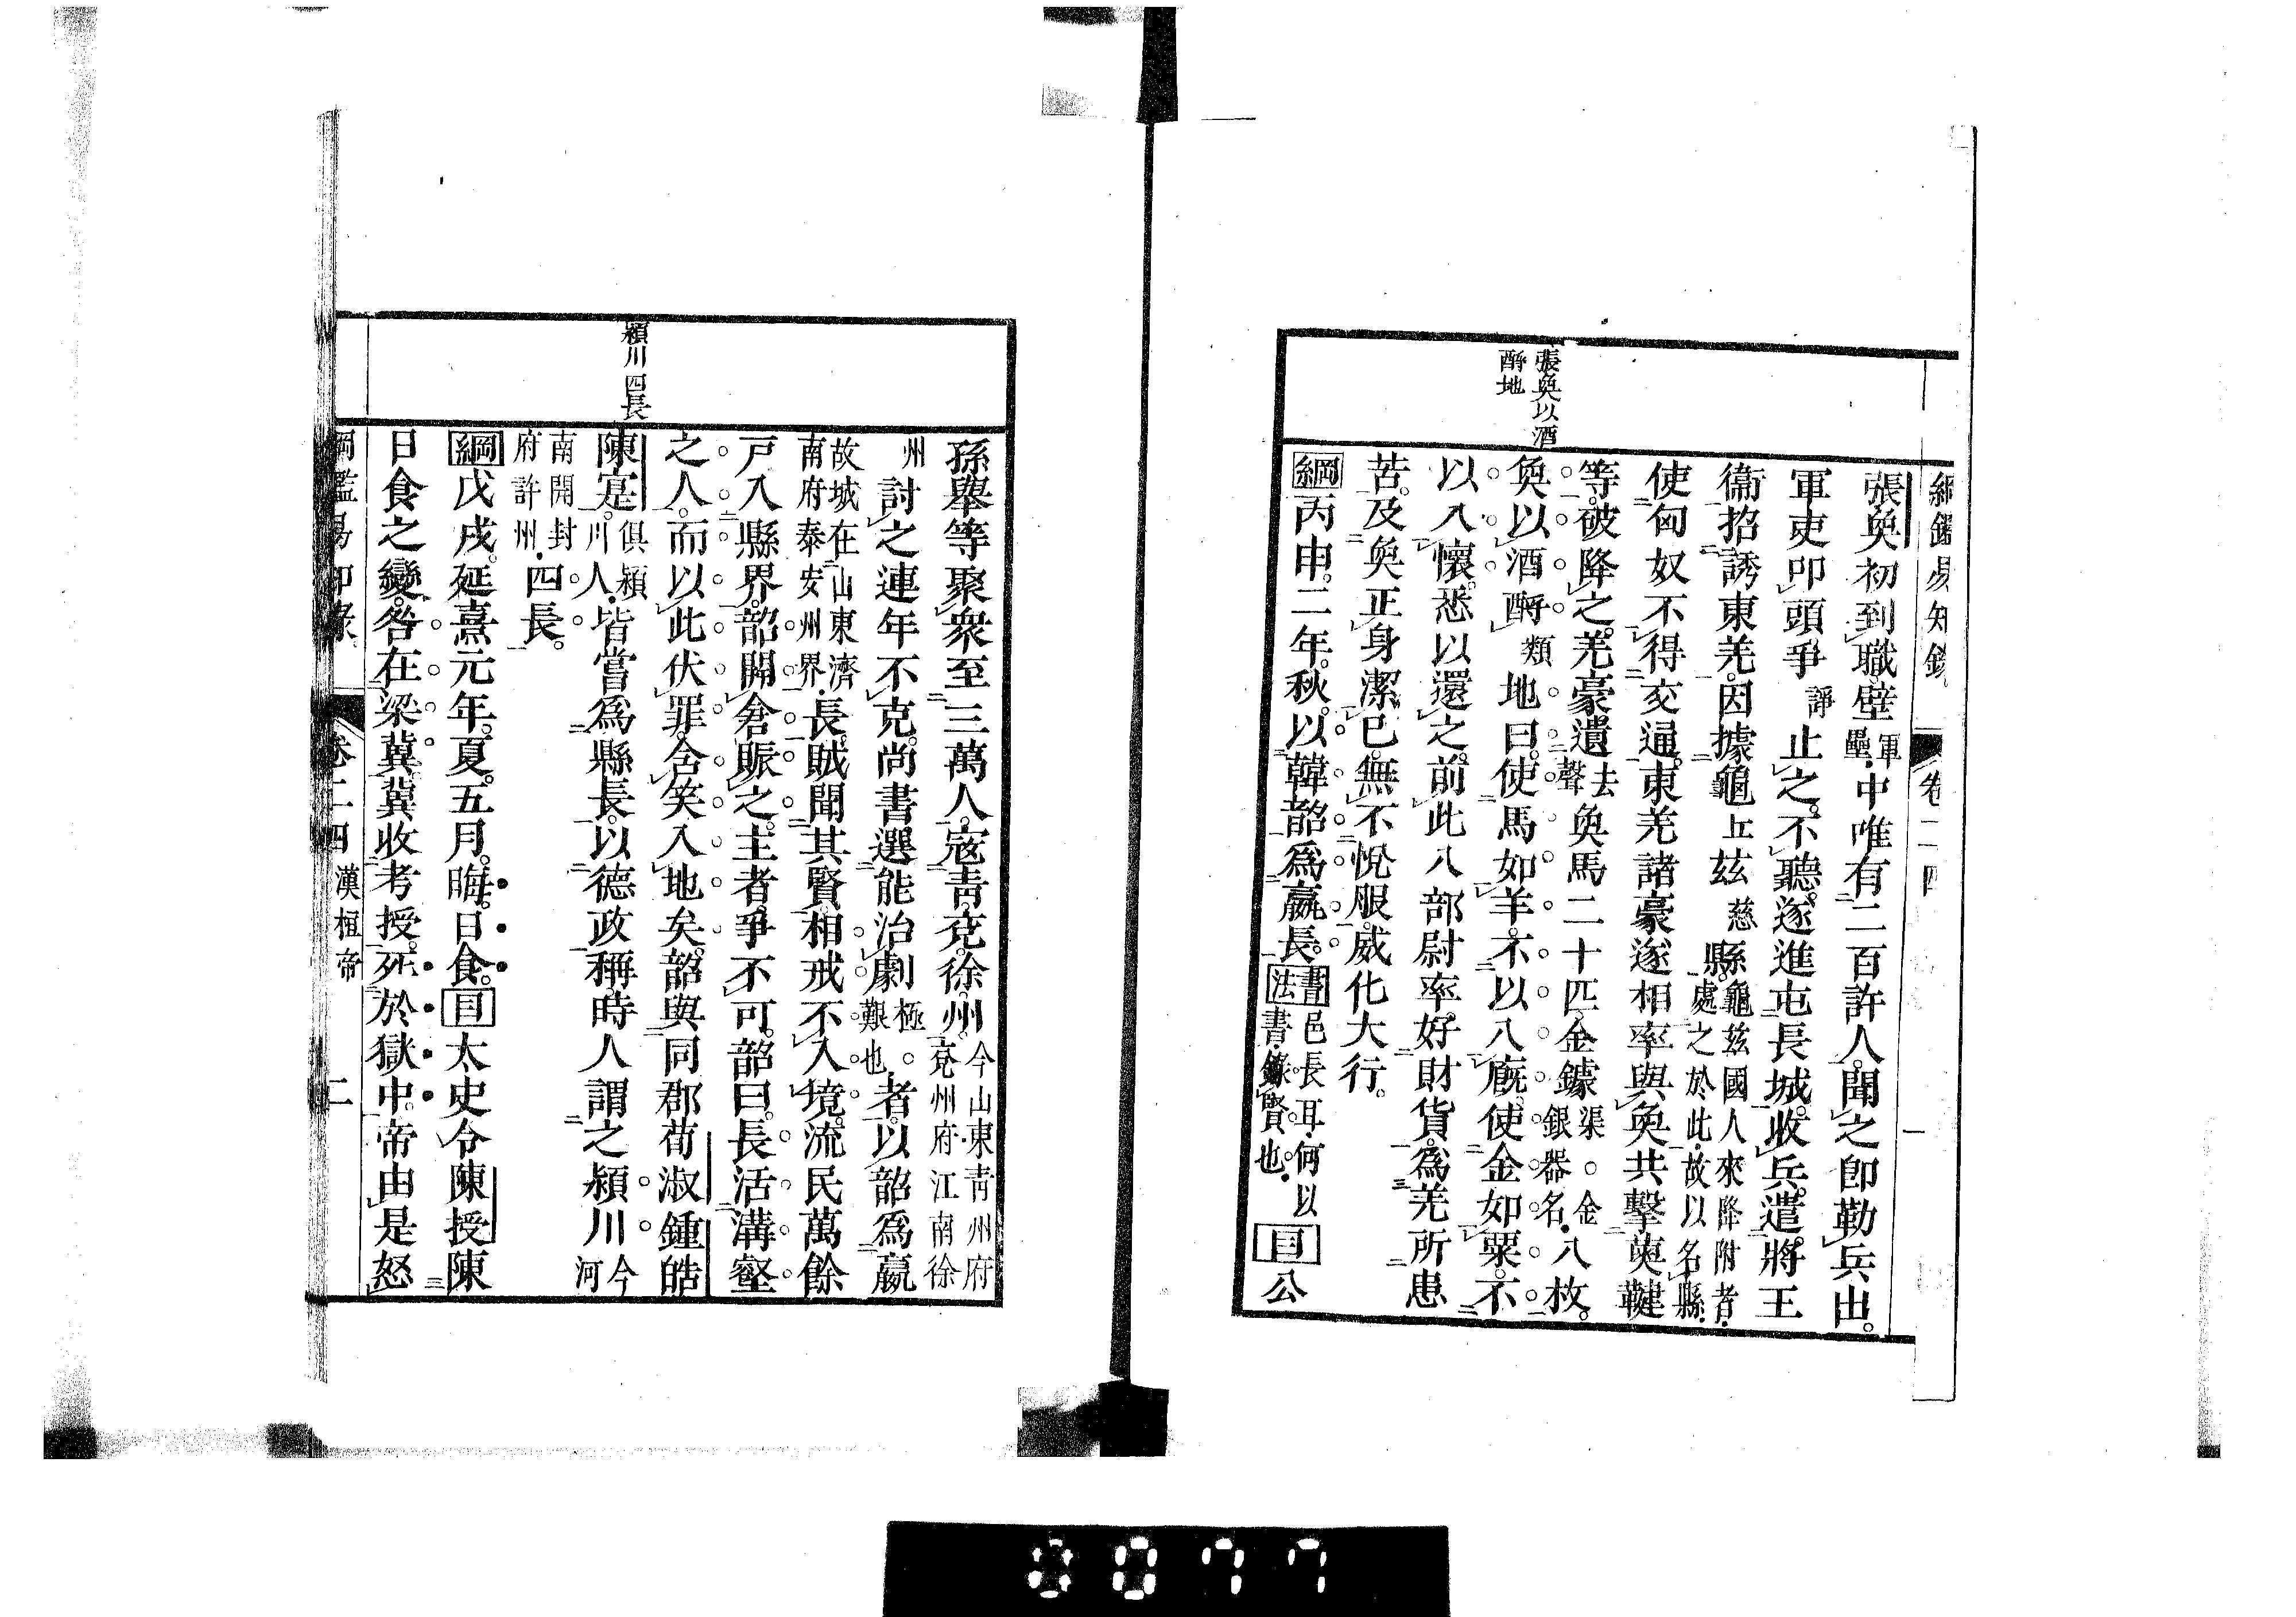 綱鑑易知錄 卷二四 一
張奐以酒
酹地
張奐初到職。壁軍壘.中唯有二百許人。聞之卽勒兵出。
軍吏叩頭爭諍止之。不聽。遂進屯長城。收兵。遣將王
衞招誘東羌。因據龜丘茲慈縣。龜茲國人來降附者.處之於此.故以名縣.
使匈奴不得交通。東羌諸豪遂相率與奐共擊薁鞬
等。破降之。羌豪遺去聲奐馬二十匹金鐻渠○金銀器名.八枚。
奐以酒酹類地曰。使馬如羊。不以入廐。使金如粟。不
以入懷。悉以還之。前此八部尉率好財貨。爲羌所患
苦。及奐正身潔已。無不悅服。威化大行。
綱丙申。二年。秋。以韓韶爲嬴長。書法邑長耳.何以書.錄賢也.目公
潁川四長
孫舉等聚衆至三萬人。寇靑。兗。徐。州。今山東靑州府兗州府江南徐
州討之連年不克。尚書選能治劇極○艱也.者。以韶爲嬴
故城在山東濟南府泰安州界.長。賊聞其賢。相戒不入境。流民萬餘
戸入縣界。韶開倉賑之。主者爭不可。韶曰。長活溝壑
之人。而以此伏罪。含笑入地矣。韶與同郡荀淑鍾皓
陳寔。俱潁川人.皆嘗爲縣長。以德政稱。時人謂之潁川今河
南開封府許州.四長。
綱戊戌。延熹元年。夏。五月。晦。日食。目太史令陳授陳
日食之變。咎在梁冀。冀收考授。死於獄中。帝由是怒
綱鑑易知錄 卷二四 漢桓帝 二
0077